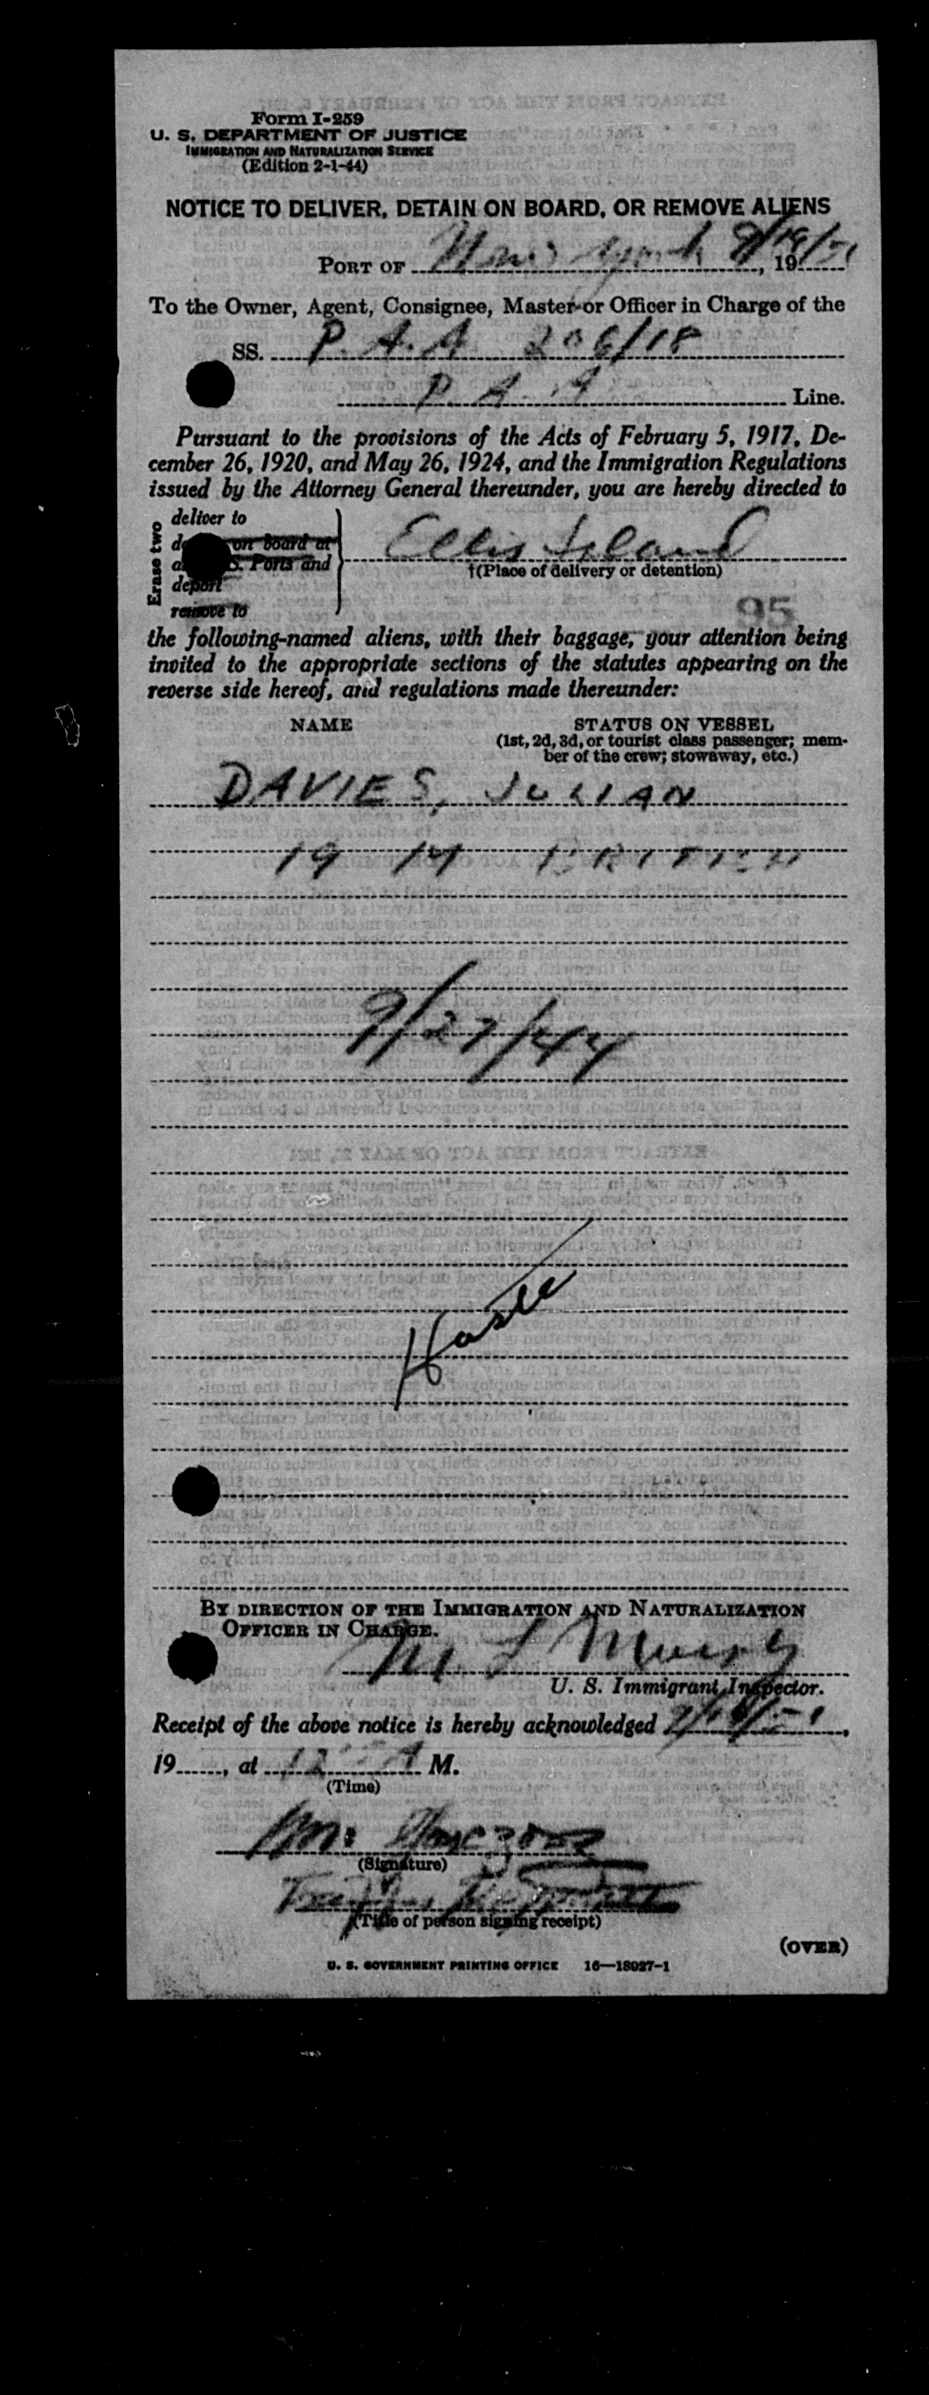 Form I-259
U. S. DEPARTMENT OF JUSTICE
IMMIGRATION AND NATURALIZATION SERVICE
(Edition 2-1-44)
NOTICE TO DELIVER, DETAIN ON BOARD, OR REMOVE ALIENS
PORT OF New York, 19
To the Owner, Agent, Consignee, Master or Officer in Charge of the
SS. P. A. A 206/18
P. A. A Line.
Pursuant to the provisions of the Acts of February 5, 1917, De-
cember 26, 1920, and May 26, 1924, and the Immigration Regulations
issued by the Attorney General thereunder, you are hereby directed to
Erase two
deliver to
on board at
S. Ports and
deport
remove to
Ellis Island
†(Place of delivery or detention)
95
the following-named aliens, with their baggage, your attention being
invited to the appropriate sections of the statutes appearing on the
reverse side hereof, and regulations made thereunder:
NAME STATUS ON VESSEL
(1st, 2d, 3d, or tourist class passenger; mem-
ber of the crew; stowaway, etc.)
DAVIES, JULIAN
19 M BRITISH
9/27/44
BY DIRECTION OF THE IMMIGRATION AND NATURALIZATION
OFFICER IN CHARGE.
M. L
U. S. Immigrant Inspector.
Receipt of the above notice is hereby acknowledged
19......, at 12 A M.
(Time)
(Signature)
(Title of person signing receipt)
(OVER)
U. S. GOVERNMENT PRINTING OFFICE 16—18027-1